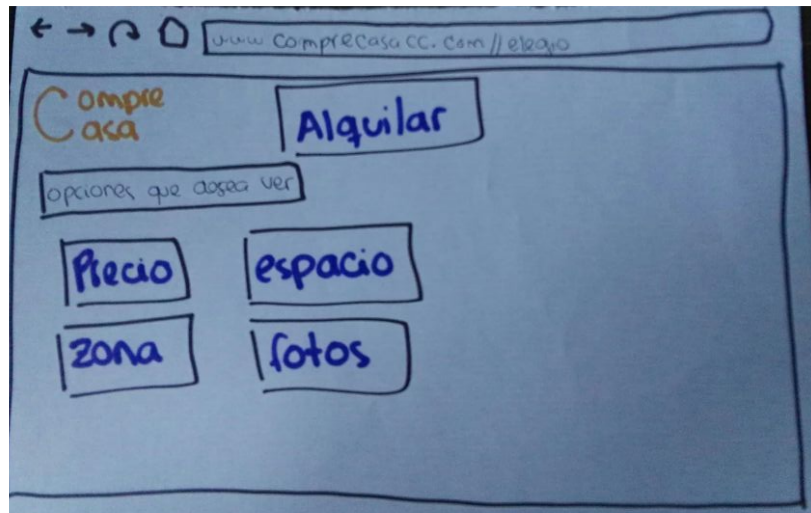 www.comprecasacc.com//elegio
Compre
Casa
Alquilar
opciones que desea ver
Precio
espacio
zona
fotos